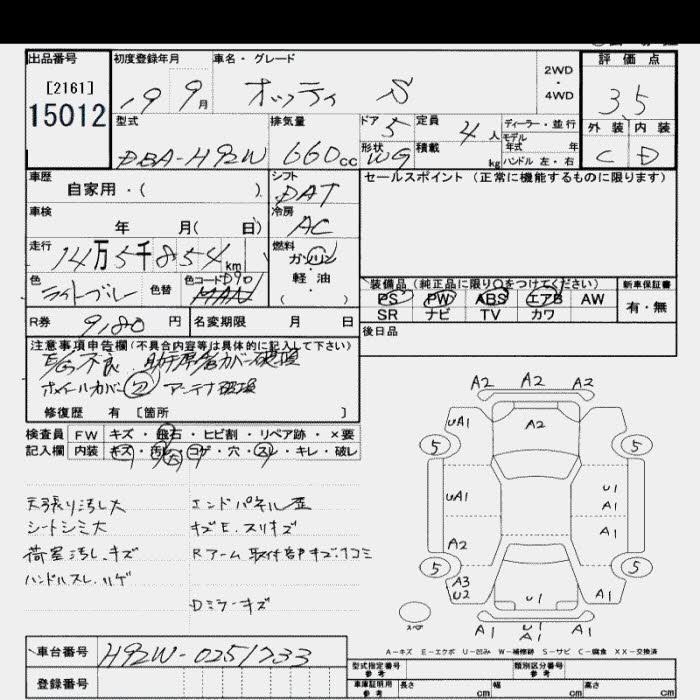 出品番号
[2161]
15012
初度登録年月
19 9月
車名・グレード
オッティ S
2WD
・
4WD
評価点
3.5
型式
DBA-H92W
排気量
660cc
ドア 5
形状 WG
定員 4人
積載 kg
ディーラー・並行
モデル
年式 年
ハンドル 左・右
外装 内装
C D
車歴
自家用・( )
シフト
DAT
セールスポイント (正常に機能するものに限ります)
車検
年 月( 日)
冷房
AC
走行
14万5千854km
燃料
ガソリン
軽油
( )
色
ライトブルー
色替
色コード D90
R券 9,180円
名変期限 月 日
装備品 (純正品に限り○をつけてください)
PS PW ABS エアB AW
SR ナビ TV カワ
新車保証書
有・無
後日品
注意事項申告欄(不具合内容等は具体的に記入して下さい)
E/G不良 助手席
ホイールカバー アンテナ破損
修復歴 有 [箇所 ]
検査員 FW キズ・飛石・ヒビ割・リペア跡・×要
記入欄 内装 キズ・汚レ・コゲ・穴・スレ・キレ・破レ
天張り汚レ大
シートシミ大
荷室汚レ、キズ
ハンドルスレ、ハゲ
エンドパネル歪
キズE、スリキズ
Rアーム取付部キズ、凹コミ
Dミラーキズ
A2 A2 A2
UA1 A2
5 5
UA1 U1
A1
A2
5 5
A3
U2
U1 A1
スペア
A1 U1 A1
A1
A-キズ E-エクボ U-凹み W-補修跡 S-サビ C-腐食 XX-交換済
車台番号 H92W-0251733
登録番号
型式指定番号
参考
類別区分番号
参考
車庫証明用
参考
長さ cm 幅 cm 高さ cm